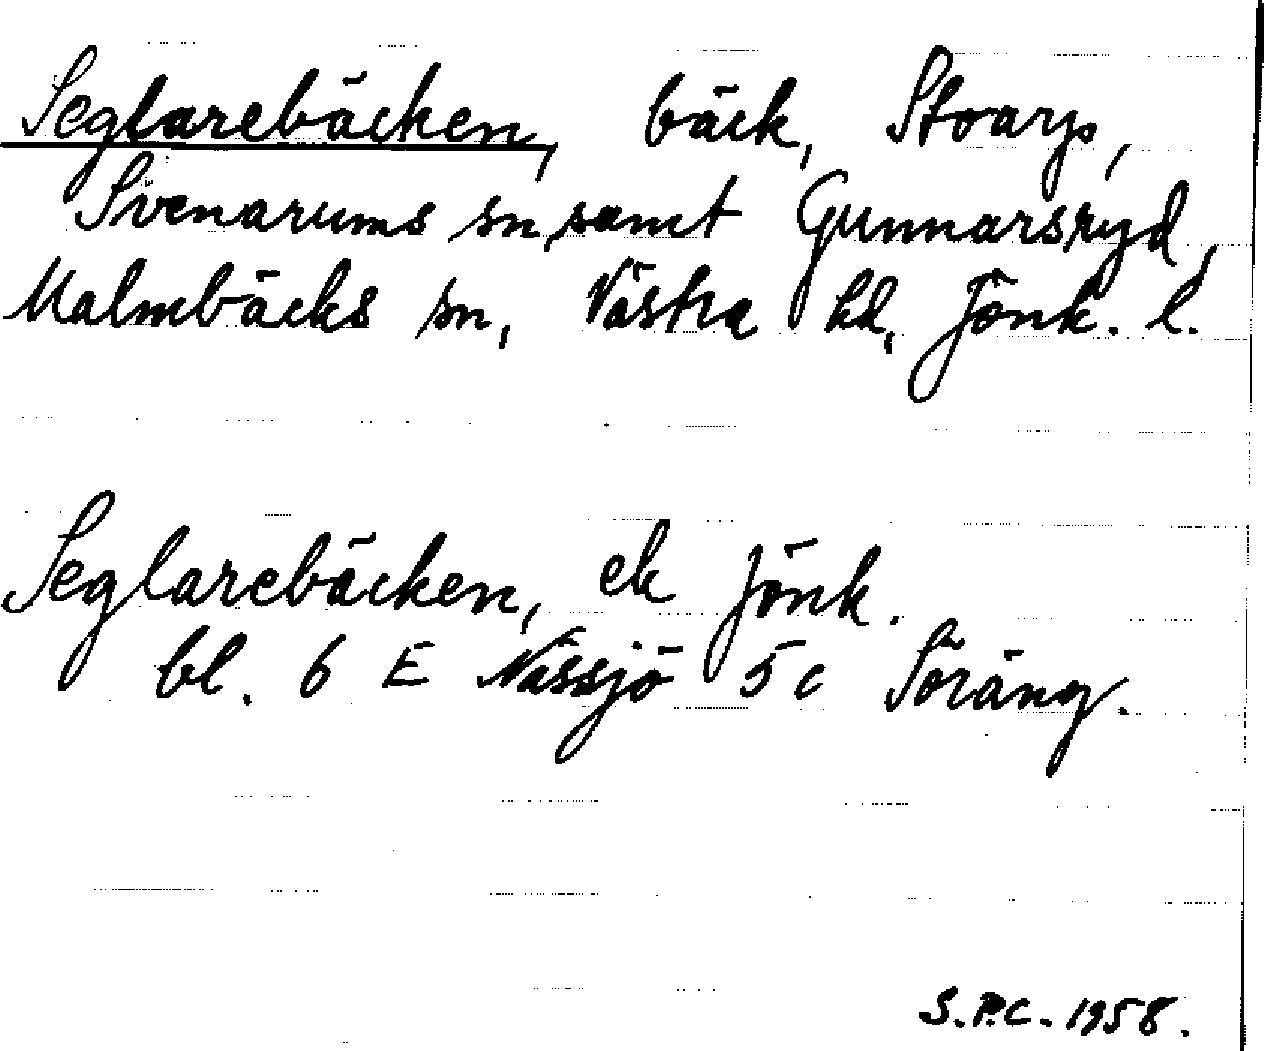 Seglarebäcken, bäck, Stoarp,
Svenarums sn, samt Gunnarsryd,
Malmbäcks sn, Västra hd, Jönk. l.
Seglarebäcken, ek Jönk.
bl. 6 E Nässjö 5 c Öräng.
S.P.C. 1958.